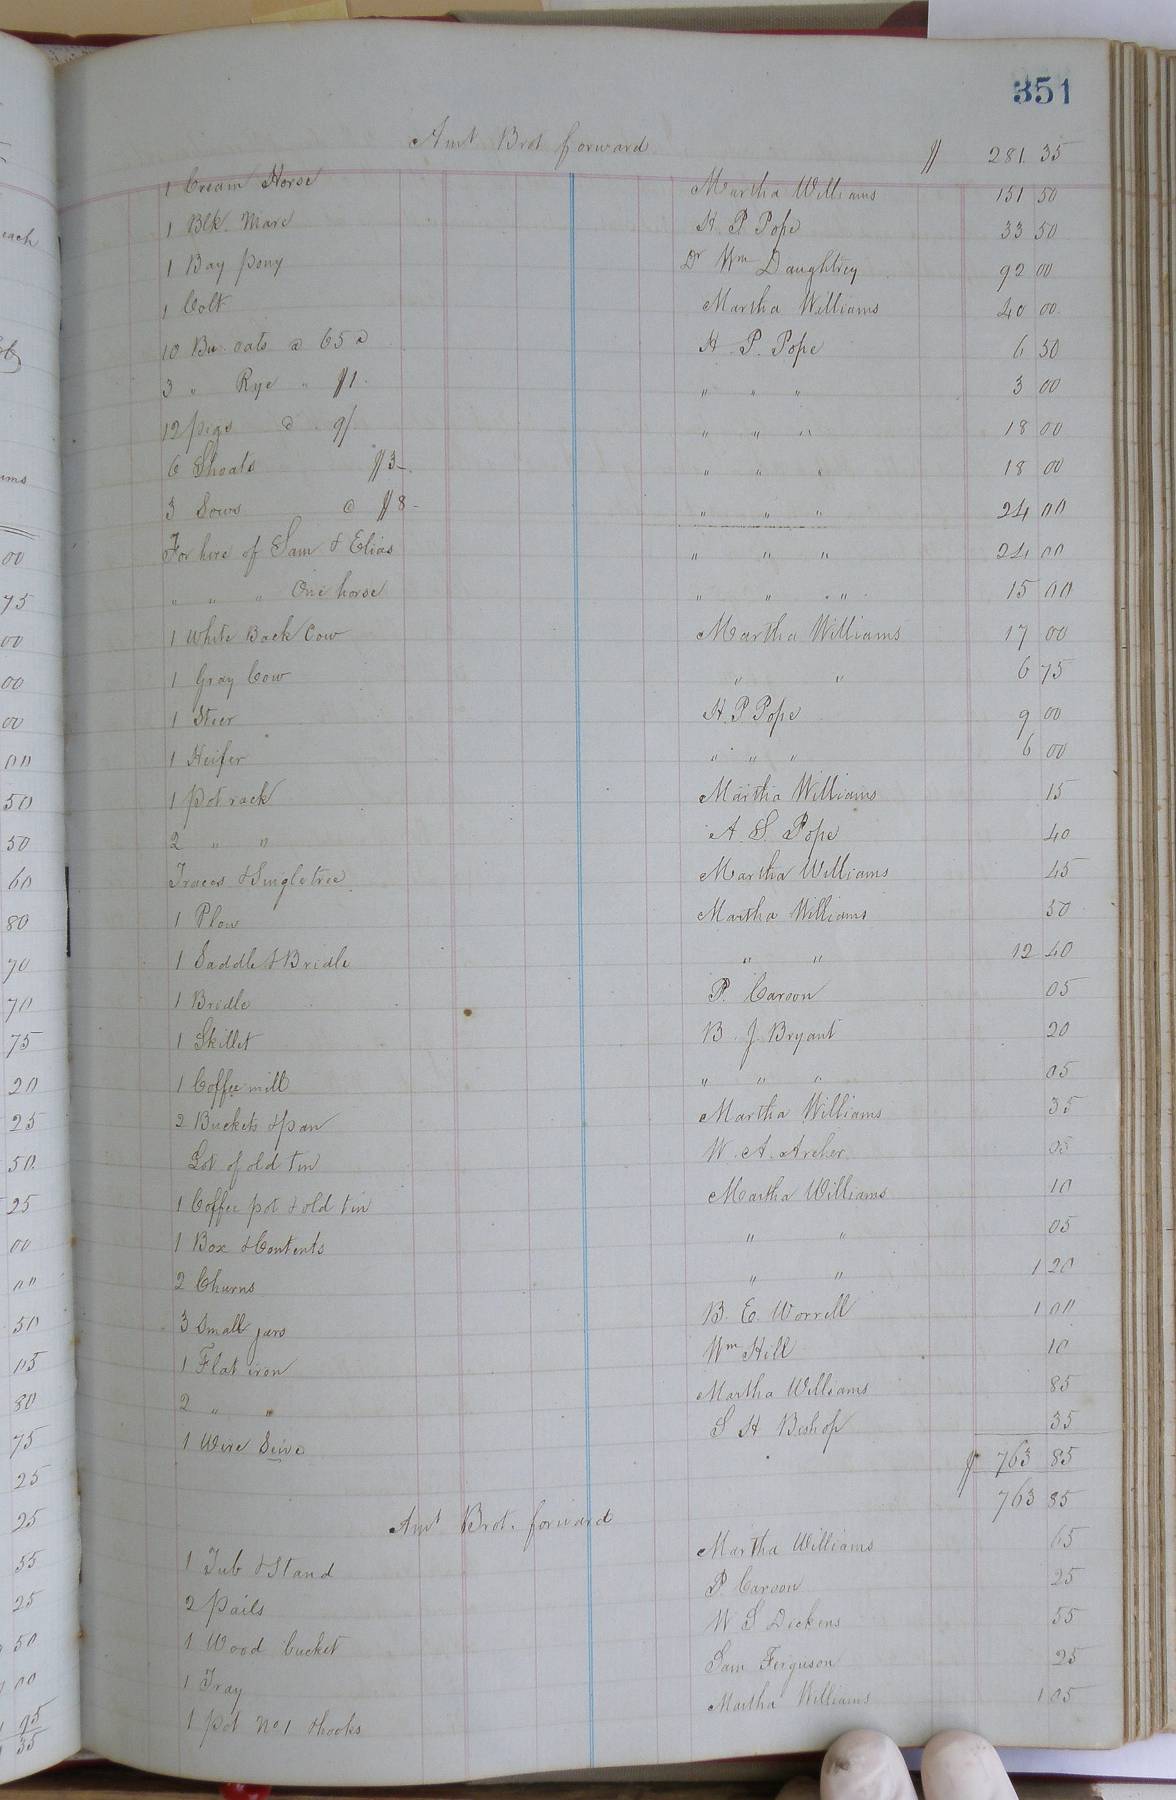 351
Amt Brot forward $ 281.35
1 Cream Horse Martha Williams 151 50
1 Blk. Mare H. P. Pope 33 50
1 Bay pony Dr Wm Daughtrey 92 00
1 Colt Martha Williams 40 00
10 Bu. oats @ 65 H. P. Pope 6 50
3 " Rye " $1. " " " 3 00
12 pigs @ 9/ " " " 18 00
6 Shoats $3- " " " 18 00
3 Sows @ $8- " " " 24 00
For hire of Sam & Elias " " " 24 00
" " " One horse " " " 15 00
1 White Back Cow Martha Williams 17 00
1 Gray Cow " " 6 75
1 Steer H. P. Pope 9 00
1 Heifer " " " 6 00
1 pot rack Martha Williams 15
2 " " A. S. Pope 40
Traces & Singletree Martha Williams 45
1 Plow Martha Williams 50
1 Saddle & Bridle " " 12 40
1 Bridle P. Carson 05
1 Skillet B. J. Bryant 20
1 Coffee mill " " " 05
2 Buckets & pan Martha Williams 35
Lot of old tin W. A. Archer 05
1 Coffee pot & old tin Martha Williams 10
1 Box & Contents " " 05
2 Churns " " 1 20
3 Small jars B. E. Worrell 1 00
1 Flat iron Wm Hill 10
2 " " Martha Williams 85
1 Wire Seive S H Bishop 35
$ 763 85
Amt Brot. forward 763 85
1 Tub & Stand Martha Williams 65
2 pails P. Carson 25
1 Wood bucket W S Dickens 55
1 Tray Sam Ferguson 25
1 pot No 1 & hooks Martha Williams 1 05